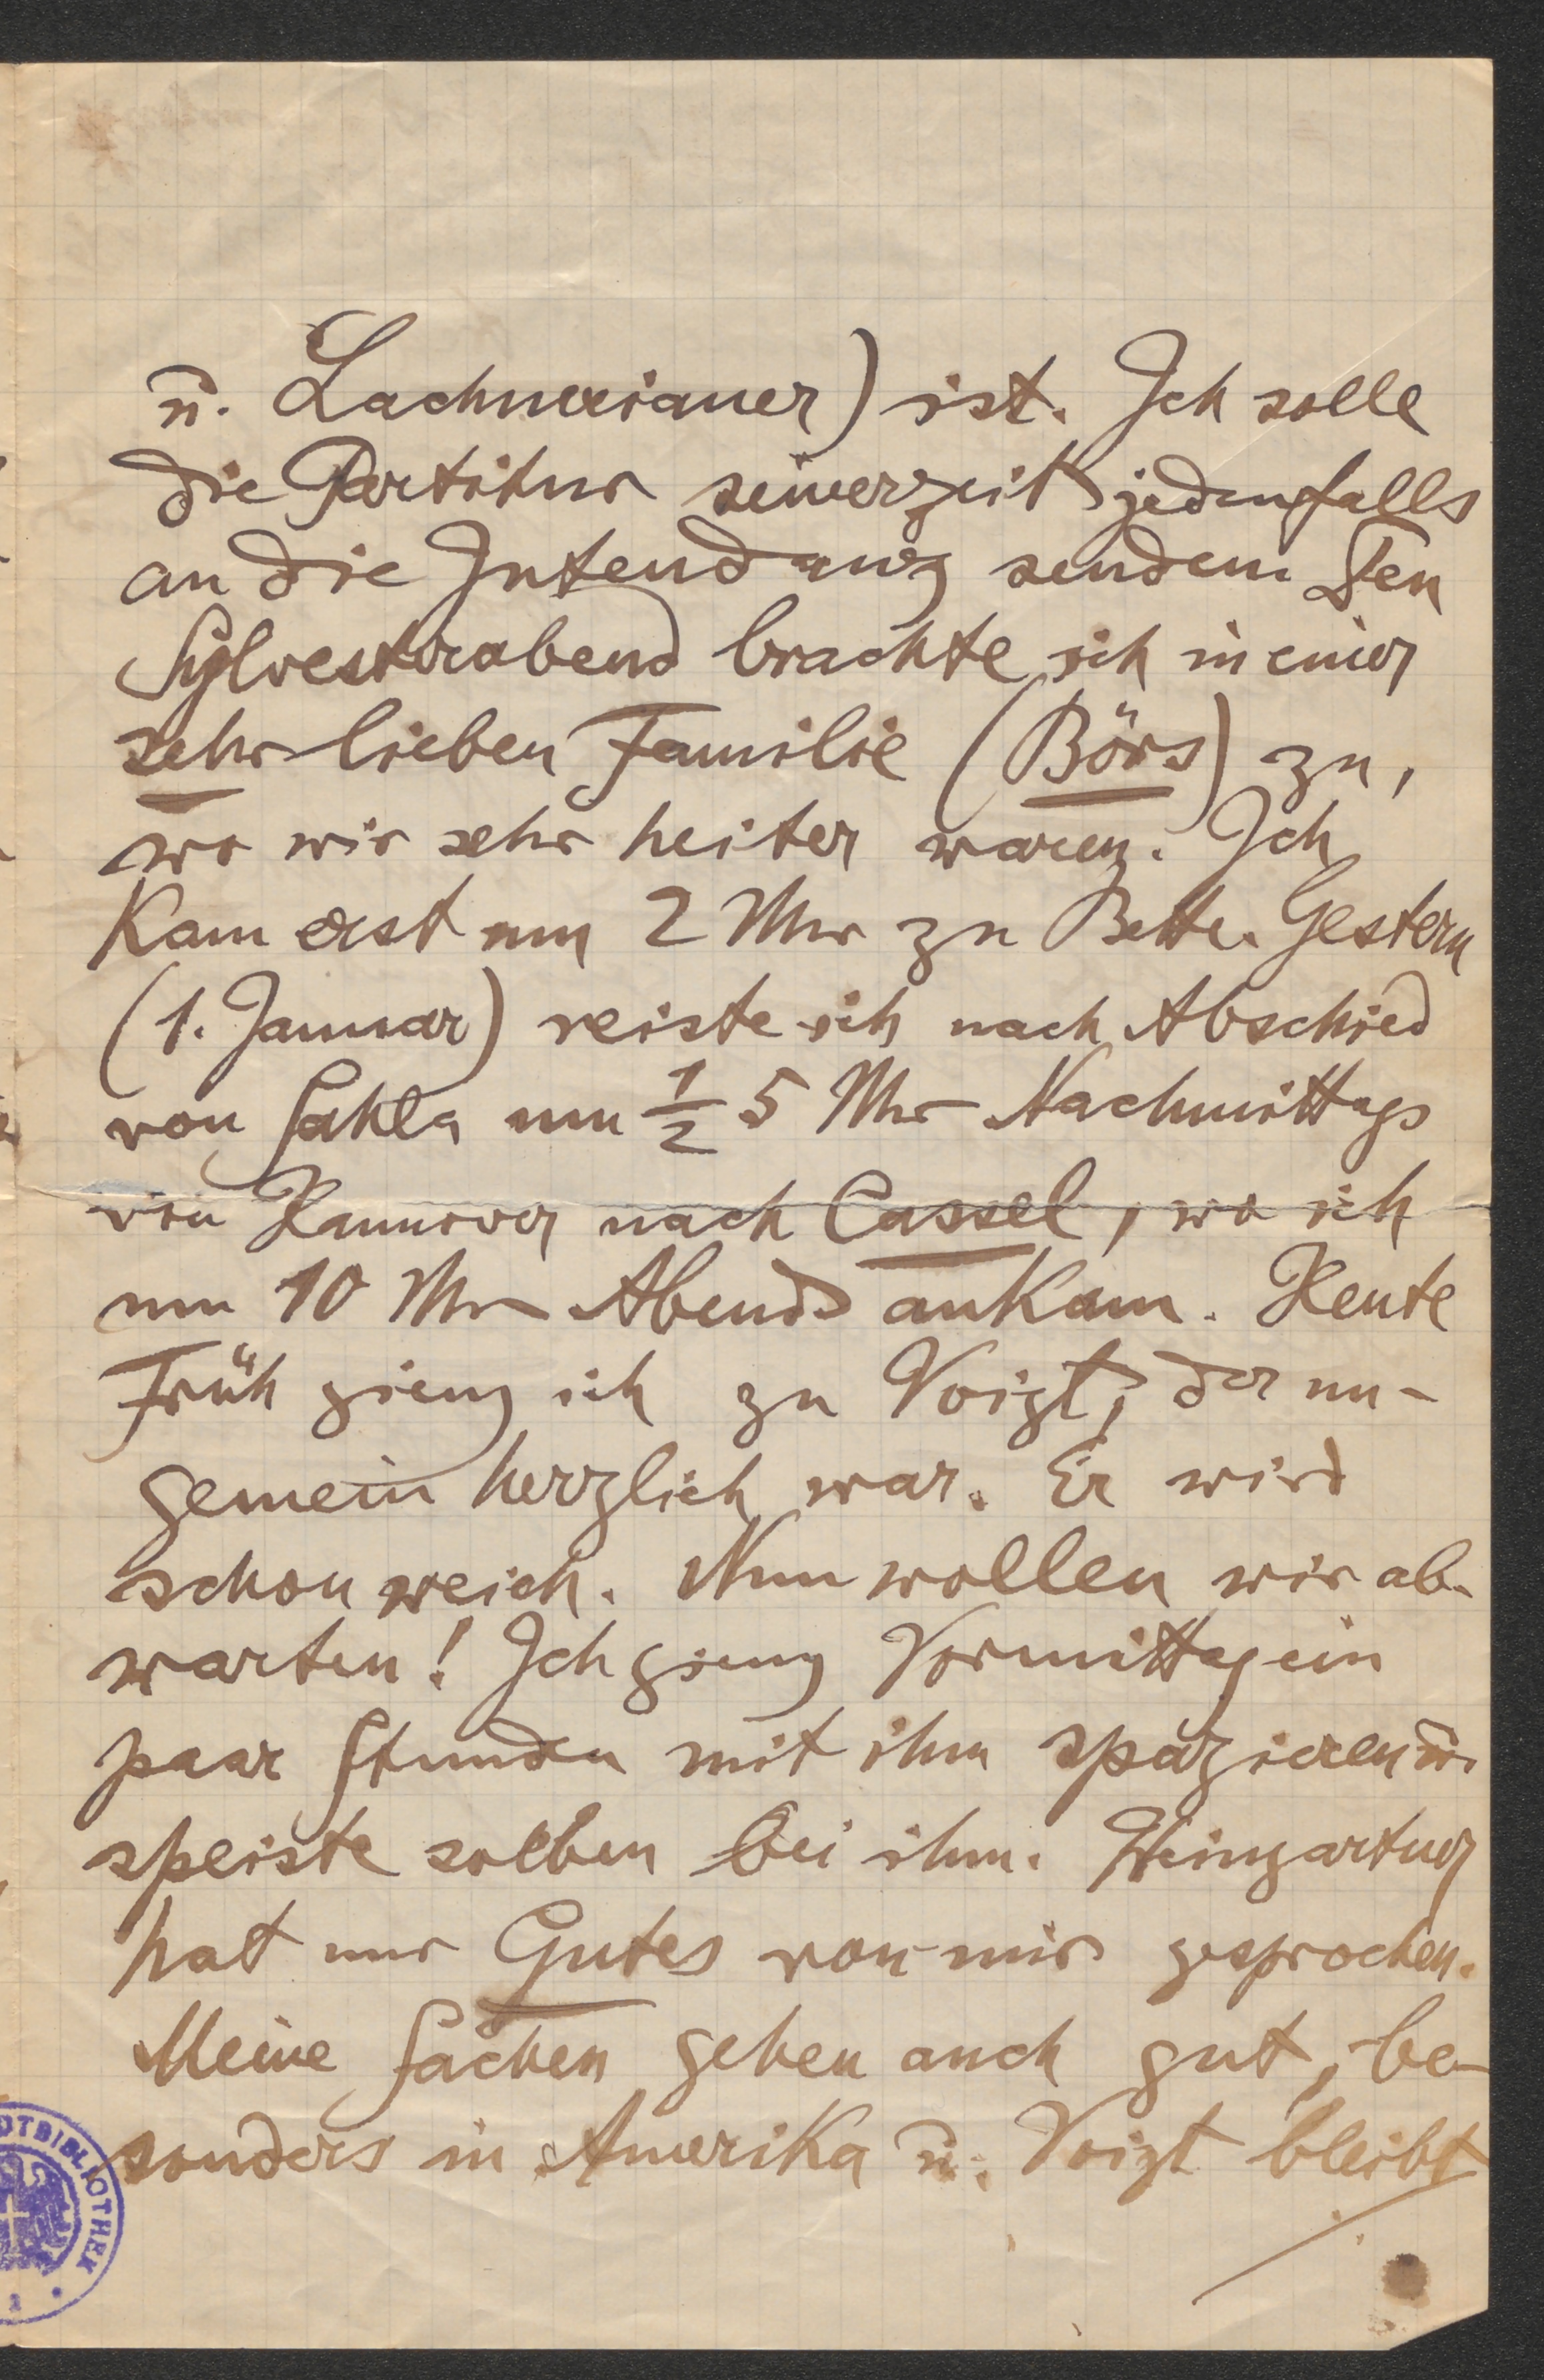 u. Lachnerianer) ist. Ich solle
die Partitur seinerzeit jedenfalls
an die Intendanz senden. Den
Sylvesterabend brachte ich in einer
sehr lieben Familie (Börs) zu,
wo wir sehr heiter waren. Ich
kam erst um 2 Uhr zu Bette. Gestern
(1. Januar) reiste ich nach Abschied
von Sahla um ½ 5 Uhr Nachmittags
von Hannover nach Cassel, wo ich
um 10 Uhr Abends ankam. Heute
Früh gieng ich zu Voigt, der un-
gemein herzlich war. Er wird
schon weich. Nun wollen wir ab-
warten! Ich gieng Vormittag ein
paar Stunden mit ihm spazieren u.
speiste selben bei ihm. Weingartner
hat nur Gutes von mir gesprochen.
Meine Sachen gehen auch gut, be-
sonders in Amerika u. Voigt bleibt
DTBIBLIOTHEK